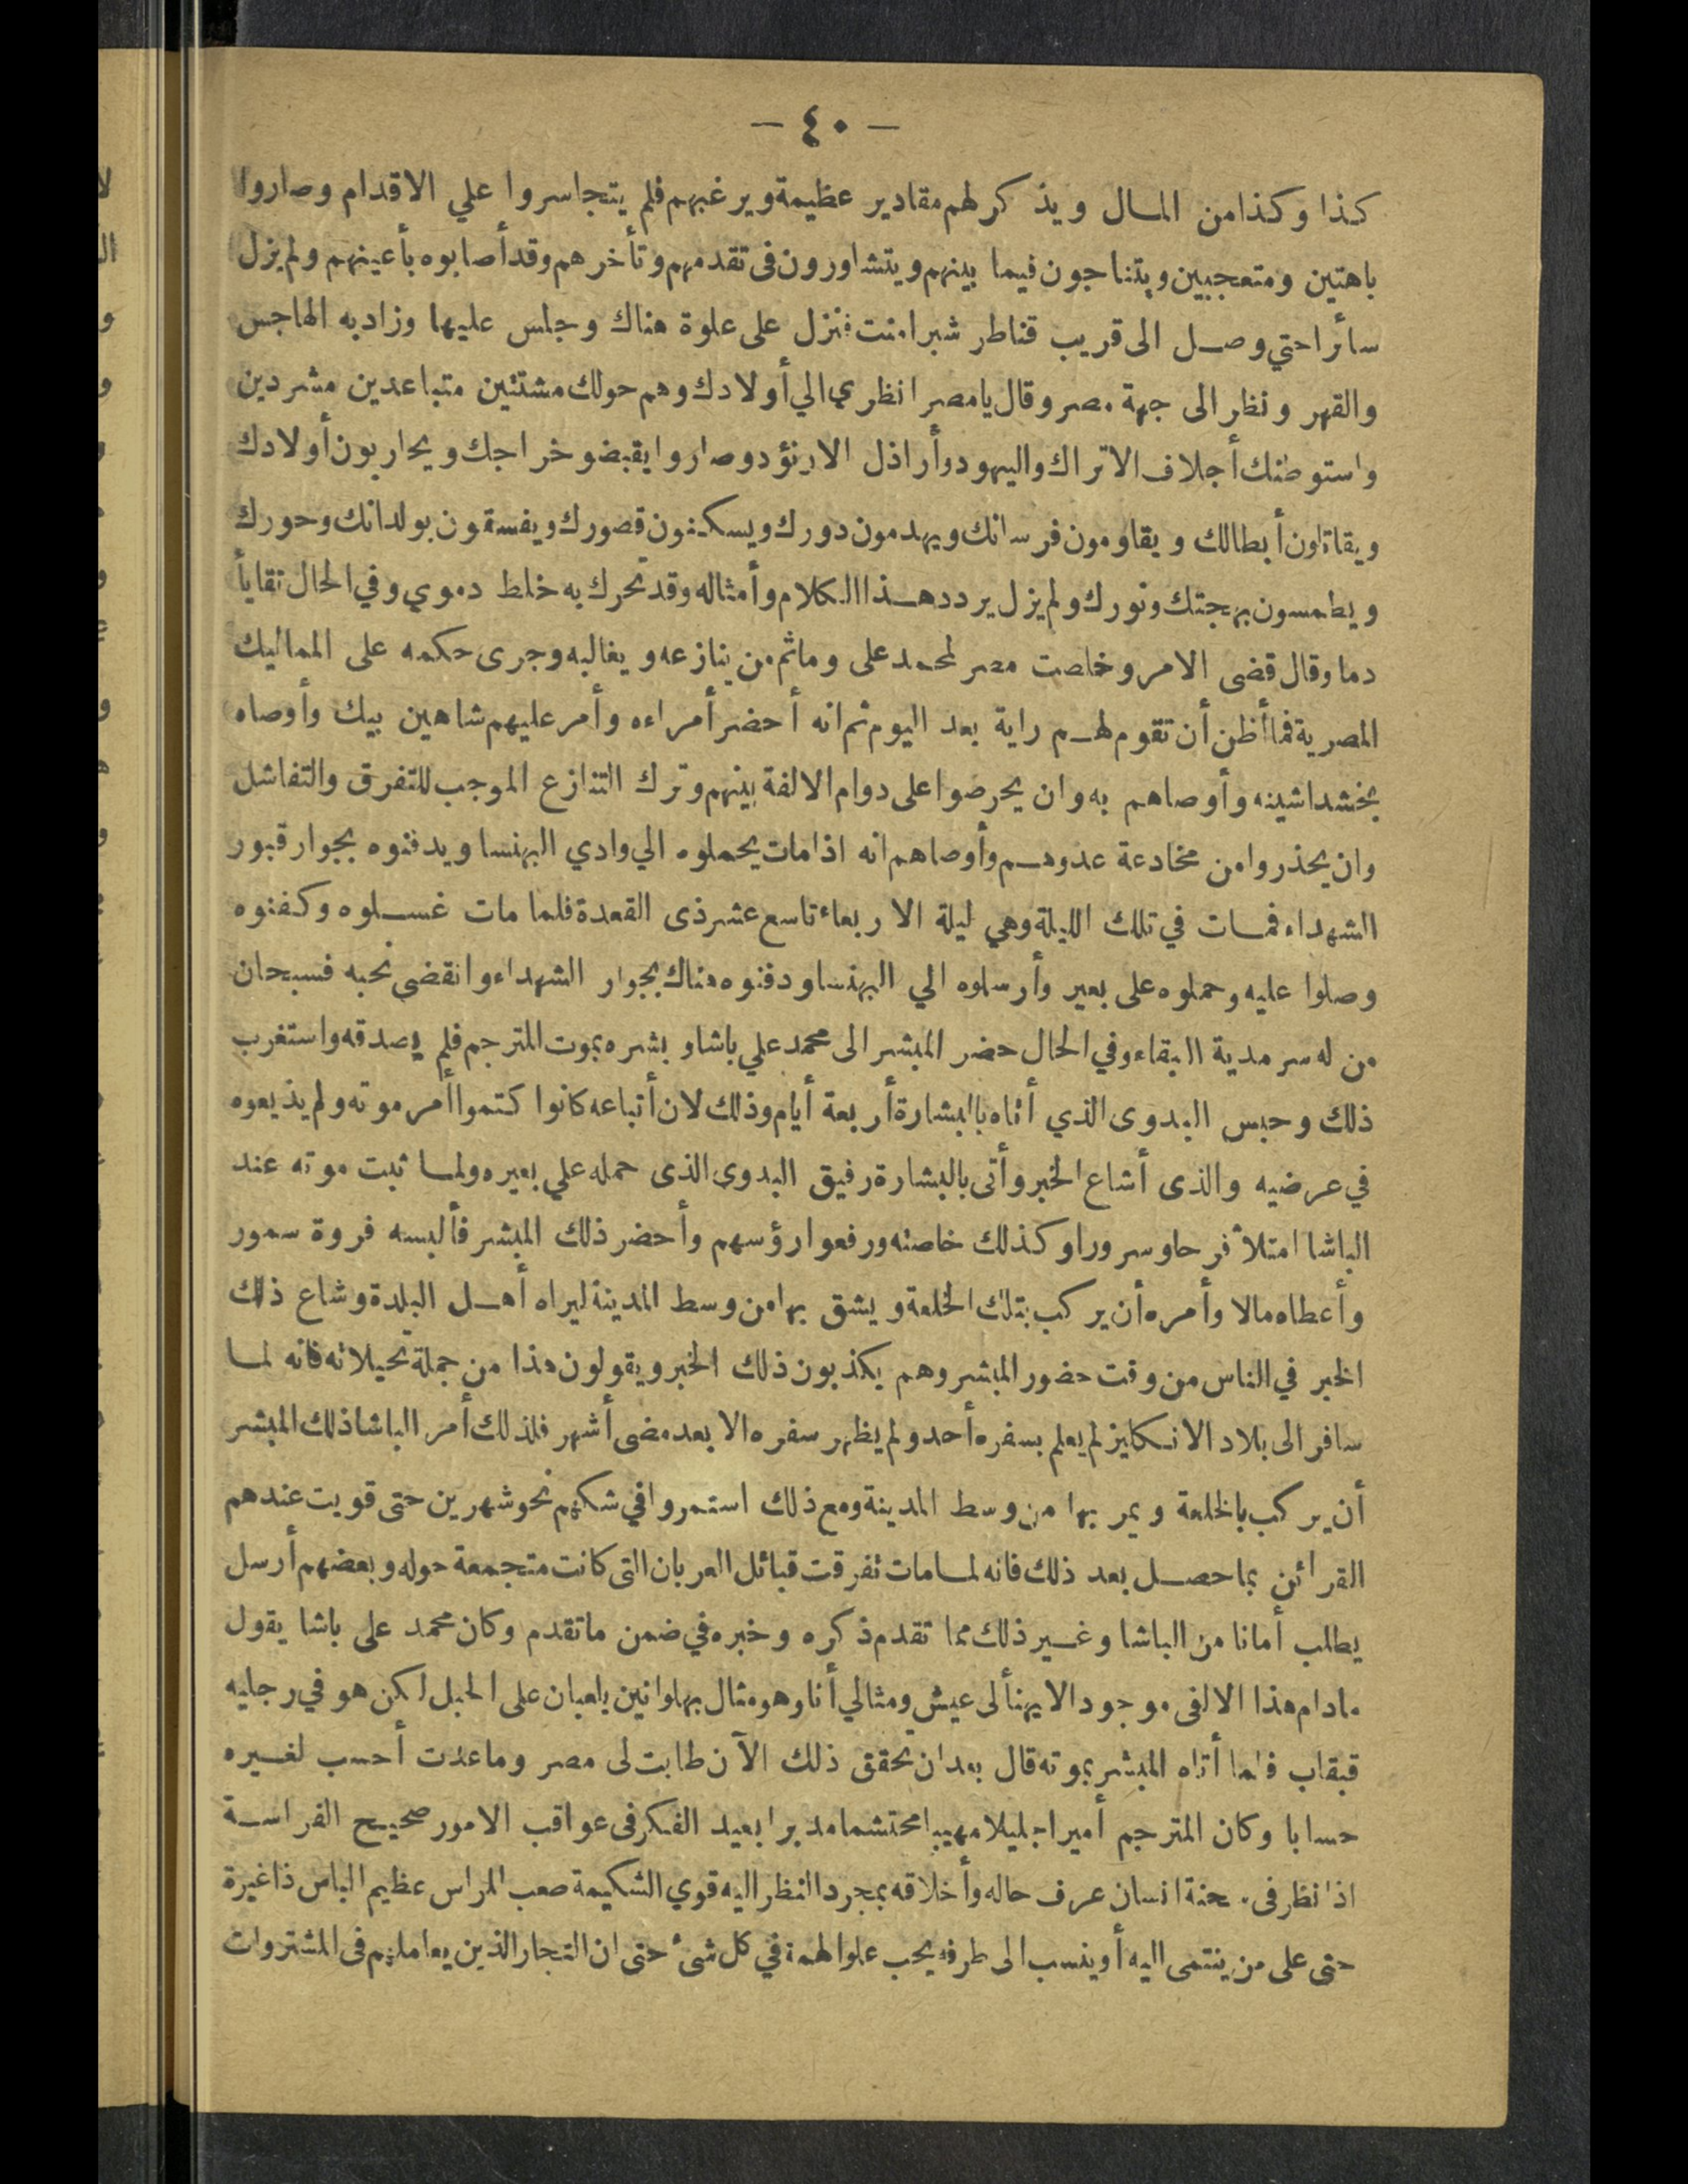 — ٤٠ —
كذا وكذا من المال ويذكر لهم مقادير عظيمة ويرغبهم فلم يتجاسروا علي الاقدام وصاروا
باهتين ومتعجبين ويتناجون فيما بينهم ويتشاورون فى تقدمهم وتأخرهم وقد أصابوه بأعينهم ولم يزل
سائرا حتي وصل الى قريب قناطر شبرامنت فنزل على علوة هناك وجلس عليها وزاد به الهاجس
والقهر ونظر الى جهة مصر وقال يا مصر انظري الي أولادك وهم حولك مشتتين متباعدين مشردين
واستوطنك أجلاف الاتراك واليهود وأراذل الارنؤد وصاروا يقبضو خراجك ويحاربون أولادك
ويقاتلون أبطالك ويقاومون فرسانك ويهدمون دورك ويسكنون قصورك ويفسقون بولدانك وحورك
ويطمسون بهجتك ونورك ولم يزل يردد هذا الكلام وأمثاله وقد تحرك به خلط دموي وفي الحال تقايأ
دما وقال قضى الامر وخلصت مصر لمحمد على وما ثم من ينازعه ويغالبه وجرى حكمه على المماليك
المصرية فما أظن أن تقوم لهم راية بعد اليوم ثم انه أحضر أمراءه وأمر عليهم شاهين بيك وأوصاه
بخشداشينه وأوصاهم به وان يحرضوا على دوام الالفة بينهم وترك التنازع الموجب للتفرق والتفاشل
وان يحذروا من مخادعة عدوهم وأوصاهم انه اذا مات يحملوه الي وادي البهنسا ويدفنوه بجوار قبور
الشهداء فمات في تلك الليلة وهي ليلة الاربعاء تاسع عشر ذى القعدة فلما مات غسلوه وكفنوه
وصلوا عليه وحملوه على بعير وأرسلوه الي البهنسا ودفنوه هناك بجوار الشهداء وانقضى نحبه فسبحان
من له سرمدية البقاء وفي الحال حضر المبشر الى محمد علي باشا وبشره بموت المترجم فلم يصدقه واستغرب
ذلك وحبس البدوى الذي أتاه بالبشارة أربعة أيام وذلك لان أتباعه كانوا كتموا أمر موته ولم يذيعوه
في عرضيه والذى أشاع الخبر وأتى بالبشارة رفيق البدوى الذى حمله علي بعيره ولما ثبت موته عند
الباشا امتلأ فرحا وسرورا وكذلك خاصته ورفعوا رؤسهم وأحضر ذلك المبشر فألبسه فروة سمور
وأعطاه مالا وأمره أن يركب بتلك الخلعة ويشق بها من وسط المدينة ليراه أهل البلدة وشاع ذلك
الخبر في الناس من وقت حضور المبشر وهم يكذبون ذلك الخبر ويقولون هذا من جملة تحيلاته فانه لما
سافر الى بلاد الانكليز لم يعلم بسفره أحد ولم يظهر سفره الا بعد مضى أشهر فلذلك أمر الباشا ذلك المبشر
أن يركب بالخلعة ويمر بها من وسط المدينة ومع ذلك استمروا في شكهم نحو شهرين حتى قويت عندهم
القرائن بما حصل بعد ذلك فانه لما مات تفرقت قبائل العربان التى كانت متجمعة حوله وبعضهم أرسل
يطلب أمانا من الباشا وغير ذلك مما تقدم ذكره وخبره في ضمن ما تقدم وكان محمد على باشا يقول
مادام هذا الالفى موجودا لا يهنألى عيش ومثالي أنا وهو مثال بهلوانين يلعبان على الحبل لكن هو في رجليه
قبقاب فلما أتاه المبشر بموته قال بعد ان تحقق ذلك الآن طابت لى مصر وما عدت أحسب لغيره
حسابا وكان المترجم أميرا جليلا مهيبا محتشما مدبرا بعيد الفكر فى عواقب الامور صحيح الفراسة
اذا نظر فى سحنة انسان عرف حاله وأخلاقه بمجرد النظر اليه قوي الشكيمة صعب المراس عظيم الباس ذا غيرة
حتى على من ينتمى اليه أو ينسب الى طرفه يحب علو الهمة في كل شئ حتى ان التجار الذين يعاملهم فى المشتروات